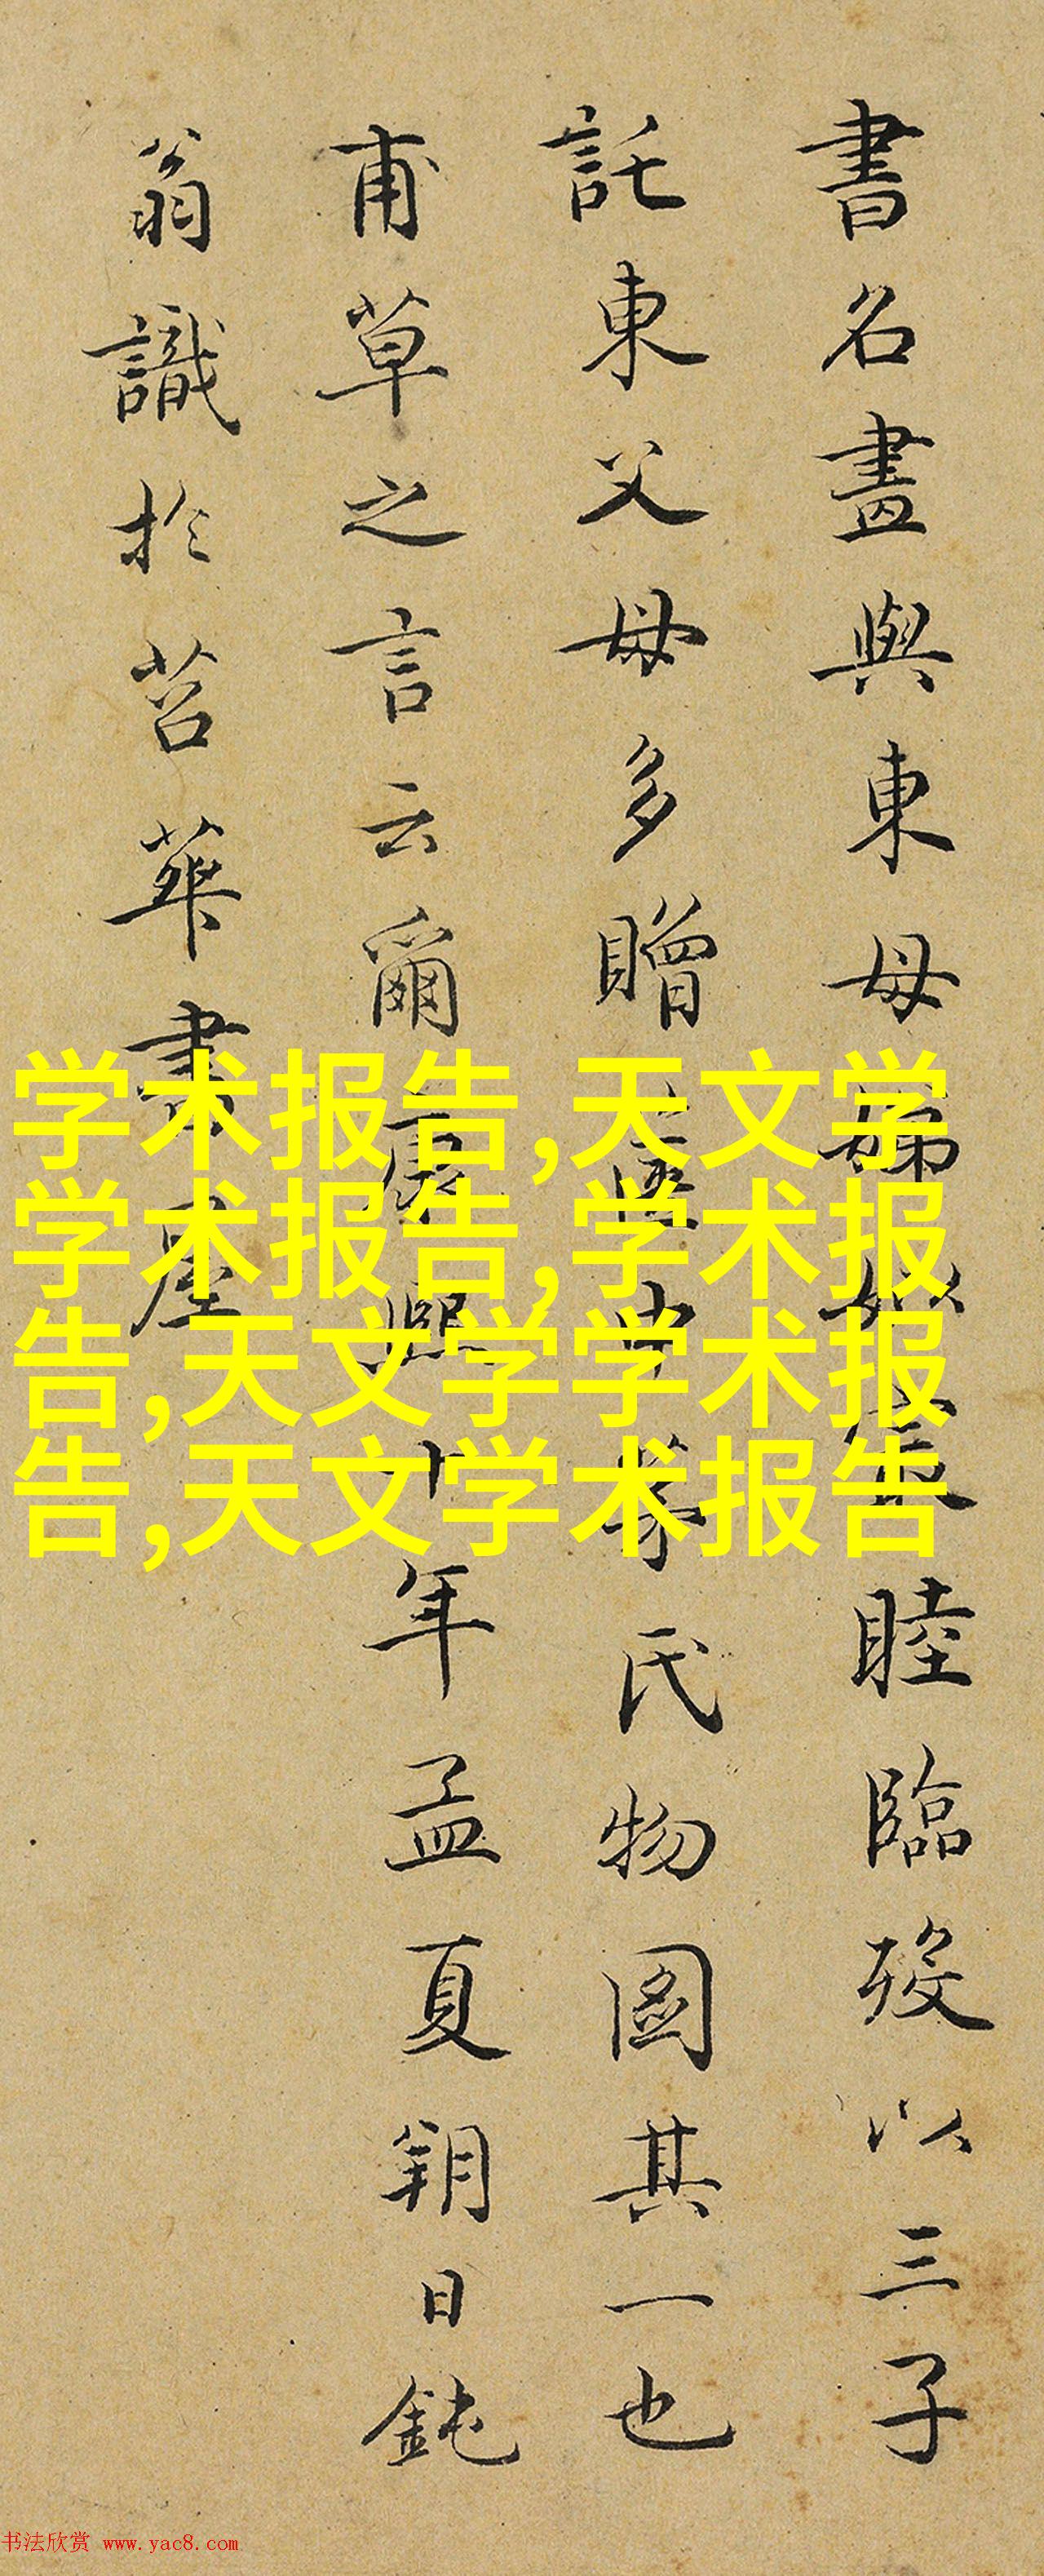 書名畫與東母娣姒最睦臨歿以三子
託東父母多贈遺此茅氏物圖其一也
甫草之言云爾康熙十年孟夏朔日鈍
翁識於苕華書屋
学术报告,天文学
学术报告,学术报
告,天文学学术报
告,天文学术报告
书法欣赏 www.yac8.com